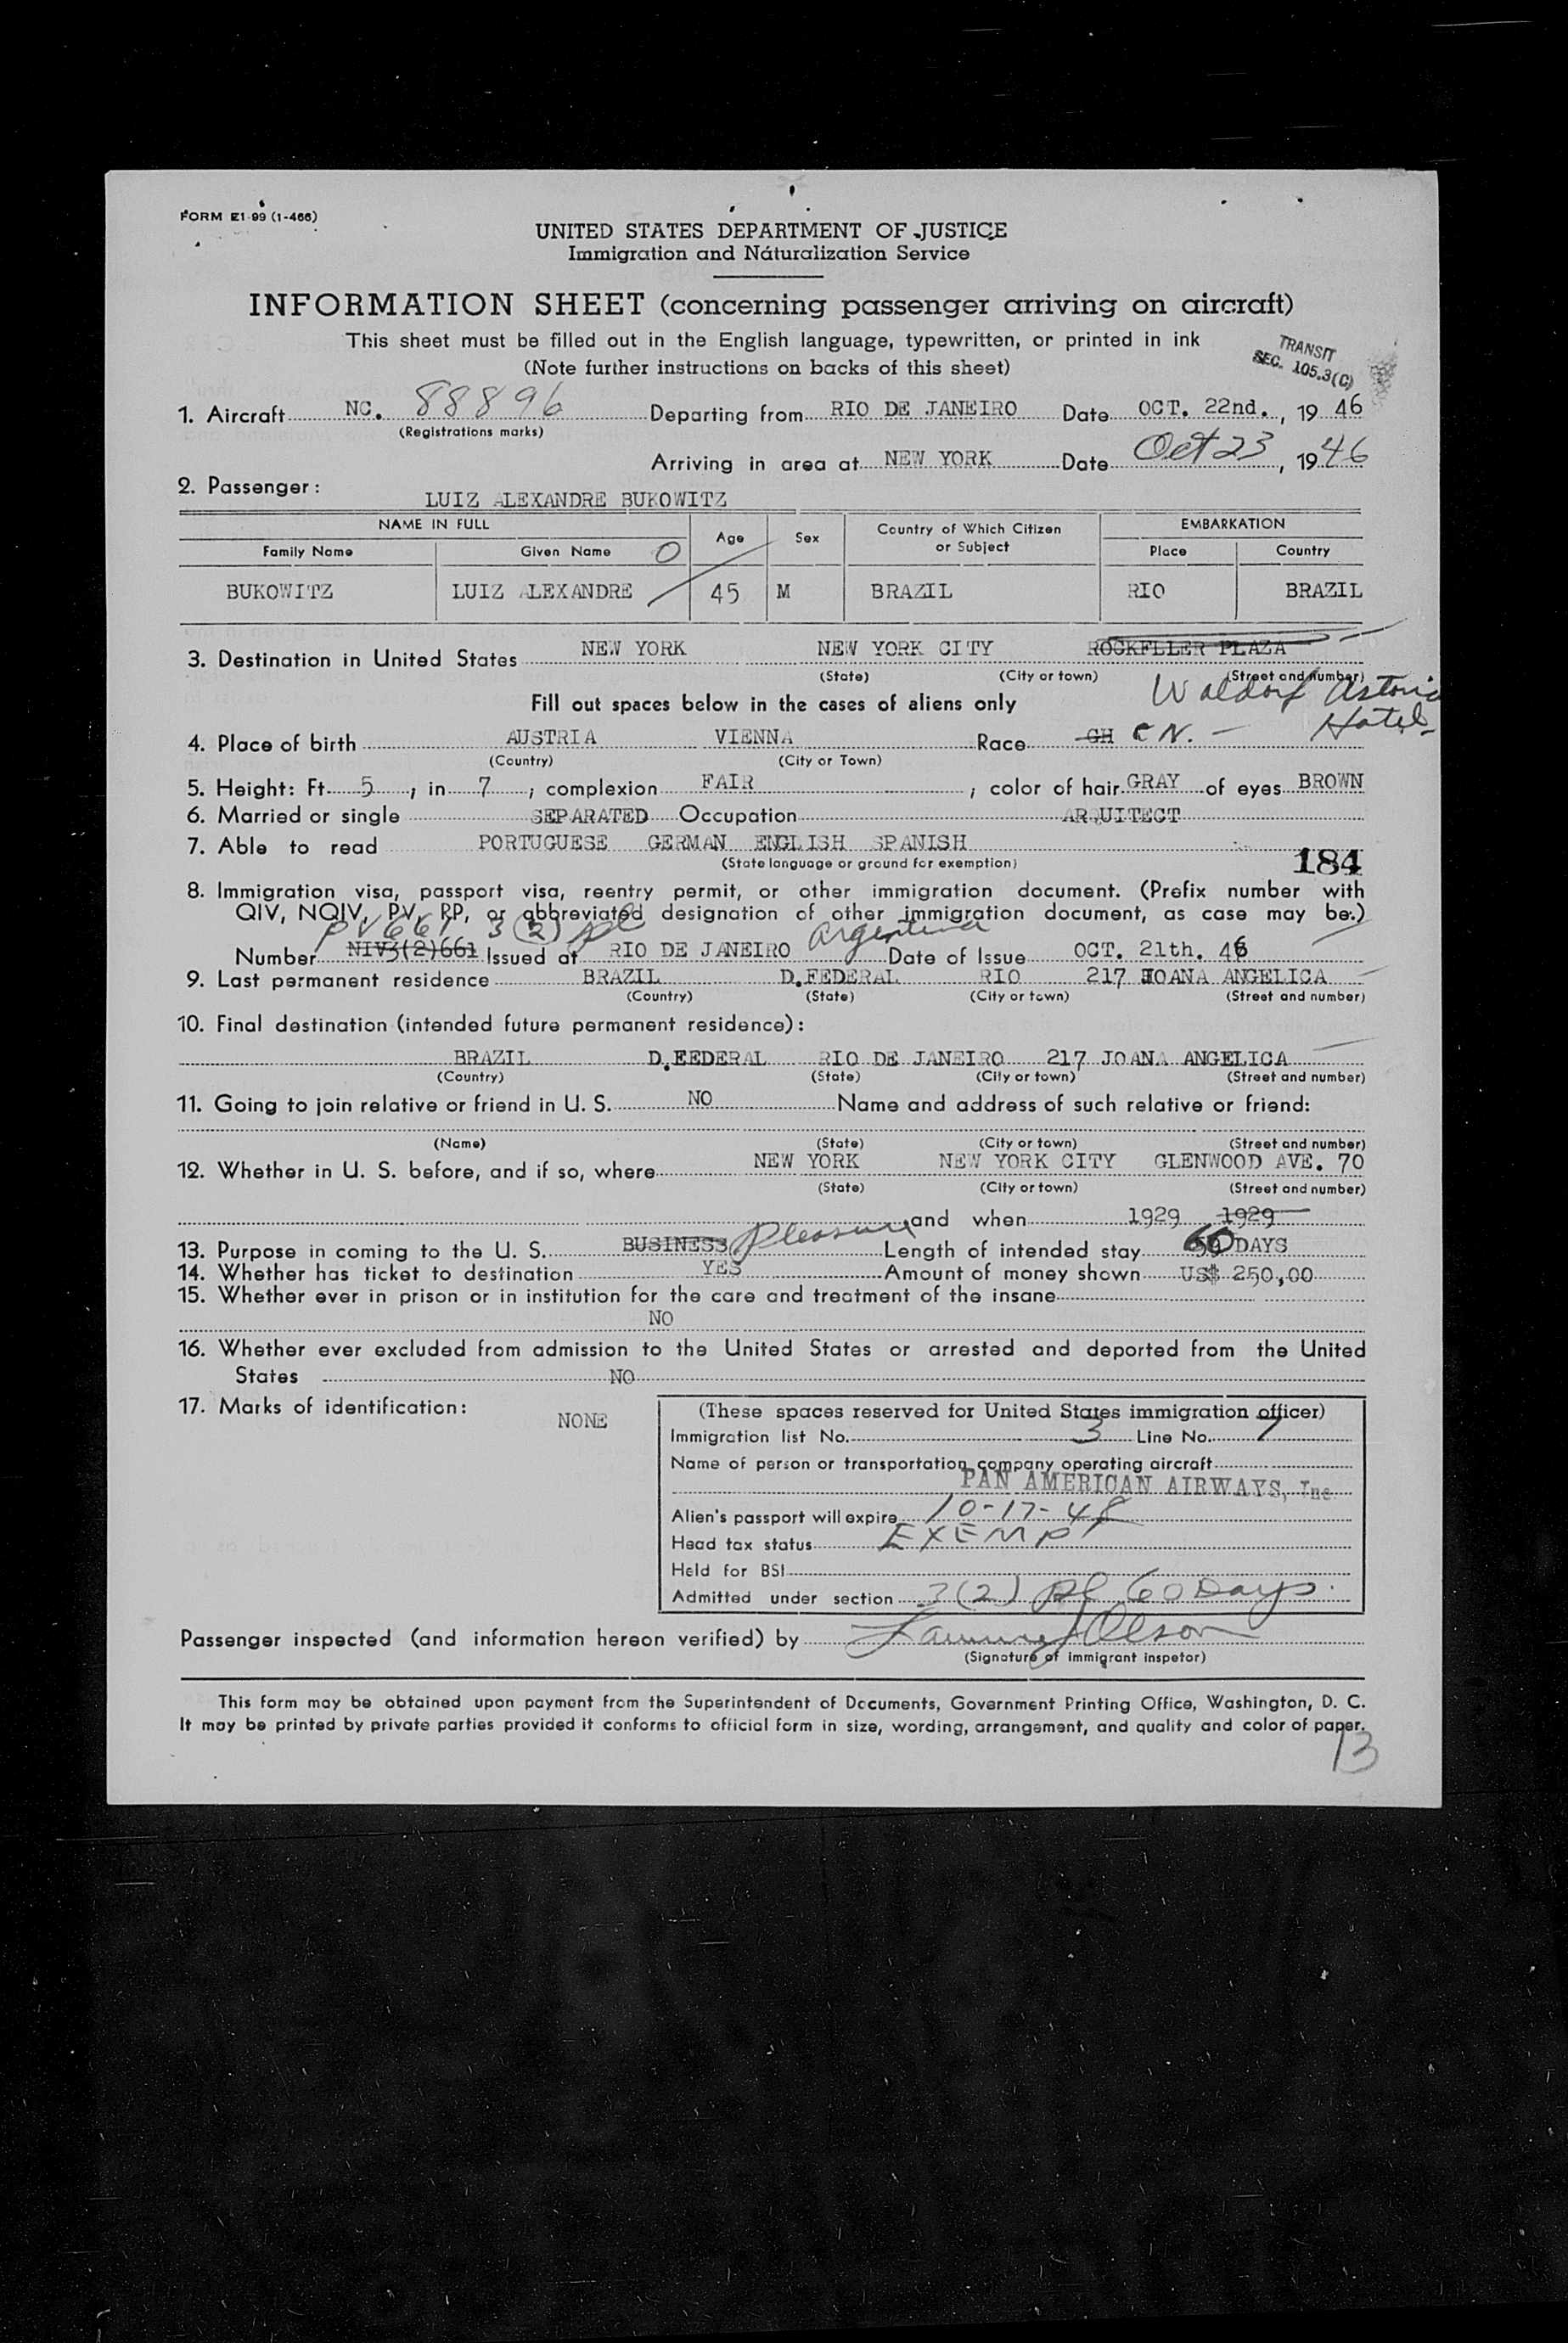 FORM E1-99 (1-466)
UNITED STATES DEPARTMENT OF JUSTICE
Immigration and Naturalization Service
INFORMATION SHEET (concerning passenger arriving on aircraft)
This sheet must be filled out in the English language, typewritten, or printed in ink
(Note further instructions on backs of this sheet)
TRANSIT
SEC. 105.3(C)
1. Aircraft NC. 88896 Departing from RIO DE JANEIRO Date OCT. 22nd., 19 46
(Registrations marks)
Arriving in area at NEW YORK Date Oct 23, 1946
2. Passenger:
LUIZ ALEXANDRE BUKOWITZ
NAME IN FULL Age Sex Country of Which Citizen or Subject EMBARKATION
Family Name Given Name O Place Country
BUKOWITZ LUIZ ALEXANDRE 45 M BRAZIL RIO BRAZIL
3. Destination in United States NEW YORK NEW YORK CITY ROCKFLLER PLAZA
(State) (City or town) (Street and number)
Waldorf Astoria
Hotel
Fill out spaces below in the cases of aliens only
4. Place of birth AUSTRIA VIENNA Race GH C N. -
(Country) (City or Town)
5. Height: Ft. 5, in 7; complexion FAIR; color of hair GRAY of eyes BROWN
6. Married or single SEPARATED Occupation ARQUITECT
7. Able to read PORTUGUESE GERMAN ENGLISH SPANISH
(State language or ground for exemption)
184
8. Immigration visa, passport visa, reentry permit, or other immigration document. (Prefix number with
QIV, NQIV, PV, RP, or abbreviated designation of other immigration document, as case may be.)
PV 661 3(2) pl Argentina
Number NIV3(2)661 Issued at RIO DE JANEIRO Date of Issue OCT. 21th. 46
9. Last permanent residence BRAZIL D.FEDERAL RIO 217 JOANA ANGELICA
(Country) (State) (City or town) (Street and number)
10. Final destination (intended future permanent residence):
BRAZIL D.FEDERAL RIO DE JANEIRO 217 JOANA ANGELICA
(Country) (State) (City or town) (Street and number)
11. Going to join relative or friend in U. S. NO Name and address of such relative or friend:
(Name) (State) (City or town) (Street and number)
12. Whether in U. S. before, and if so, where NEW YORK NEW YORK CITY GLENWOOD AVE. 70
(State) (City or town) (Street and number)
and when 1929 1929
13. Purpose in coming to the U. S. BUSINESS Pleasure Length of intended stay 60 DAYS
14. Whether has ticket to destination YES Amount of money shown US$ 250,00
15. Whether ever in prison or in institution for the care and treatment of the insane
NO
16. Whether ever excluded from admission to the United States or arrested and deported from the United
States NO
17. Marks of identification: NONE
(These spaces reserved for United States immigration officer)
Immigration list No. 3 Line No. 7
Name of person or transportation company operating aircraft
PAN AMERICAN AIRWAYS, Inc.
Alien's passport will expire 10-17-48
Head tax status EXEMPT
Held for BSI
Admitted under section 3(2) pl 60 Days.
Passenger inspected (and information hereon verified) by Olson
(Signature of immigrant inspetor)
This form may be obtained upon payment from the Superintendent of Documents, Government Printing Office, Washington, D. C.
It may be printed by private parties provided it conforms to official form in size, wording, arrangement, and quality and color of paper.
13